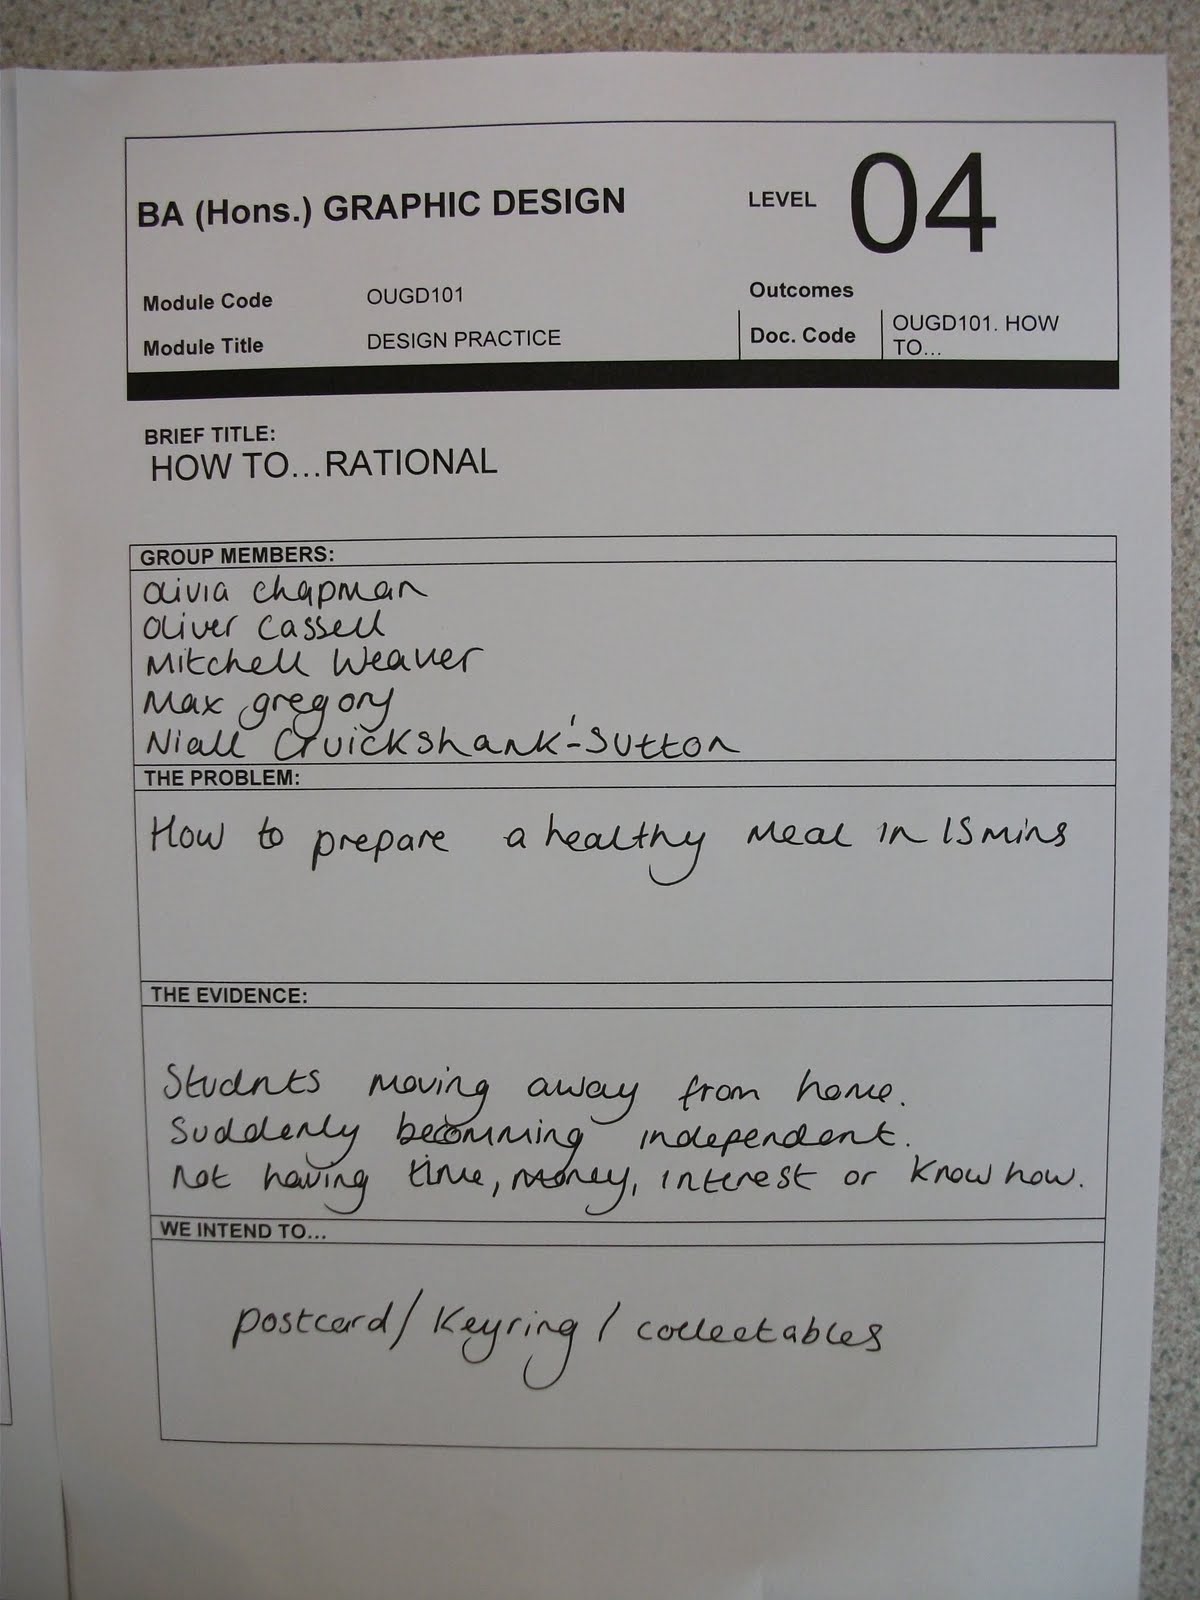 BA (Hons.) GRAPHIC DESIGN
LEVEL 04
Module Code OUGD101
Outcomes
Module Title DESIGN PRACTICE
Doc. Code OUGD101. HOW
TO...
BRIEF TITLE:
HOW TO...RATIONAL
GROUP MEMBERS:
Olivia Chapman
Oliver Cassell
Mitchell Weaver
Max gregory
Niall Cruickshank-Sutton
THE PROBLEM:
How to prepare a healthy meal in 15mins
THE EVIDENCE:
Studnts moving away from home.
Suddenly becomming independent.
not having time, money, interest or know how.
WE INTEND TO...
postcard/ Keyring / collectables